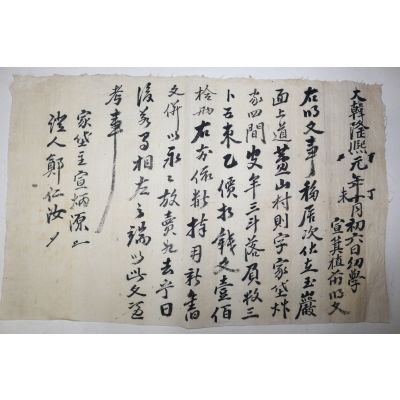 大韓隆熙元年丁未十月初六日幼學
宣箕植前明文
右明文事 移居次伏在玉巖
面上道蓋山村 則字家垈
家四間 安年三斗落 負數三
卜五束乙 價折錢文壹佰
拾兩 右前依數捧用 新舊
文倂以永永放賣爲去乎 日
後若有相左之端 以此文憑
考事
家垈主 宣炳源
證人 鄭仁汝